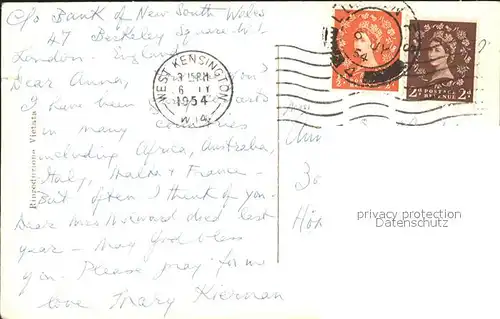 C/o Bank of New South Wales
47 Berkeley Square W.1.
London England
Dear Anna,
I have been
in many countries
including Africa, Australia,
Italy, Malta & France –
But often I think of you.
Dear Mrs died last
year – May God bless
you. Please pray for me
love Mary Kiernan
Riproduzione Vietata
WEST KENSINGTON
3 15 PM
6 JY
1954
W.14
POSTAGE
REVENUE
2d 2d
privacy protection
Datenschutz